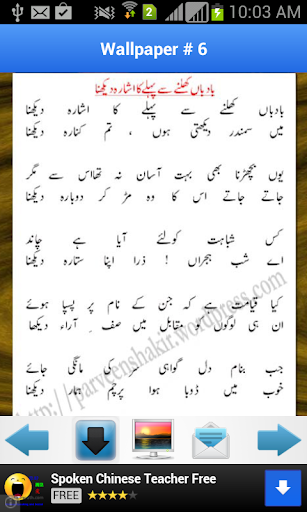 10:03 AM
Wallpaper # 6
بادباں کھلنے سے پہلے کا اشارہ دیکھنا
بادباں کھلنے سے پہلے کا اشارہ دیکھنا
میں سمندر دیکھتی ہوں ، تم کنارہ دیکھنا
یوں بچھڑنا بھی بہت آسان نہ تھااس سے مگر
جاتے جاتے اس کا وہ مڑ کر دوبارہ دیکھنا
کس شباہت کولئے آیا ہے چاند
اے شب ہجراں ! ذرا اپنا ستارہ دیکھنا
کیا قیامت ہے کہ جن کے نام پر پسپا ہوئے
ان ہی لوگوں کو مقابل میں صف آراء دیکھا
جب بنام دل گواہی سر کی مانگی جائے
خوب میں ڈوبا ہوا پرچم ہمارا دیکھنا
http://parveenshakir.wordpress.com
Spoken Chinese Teacher Free
FREE